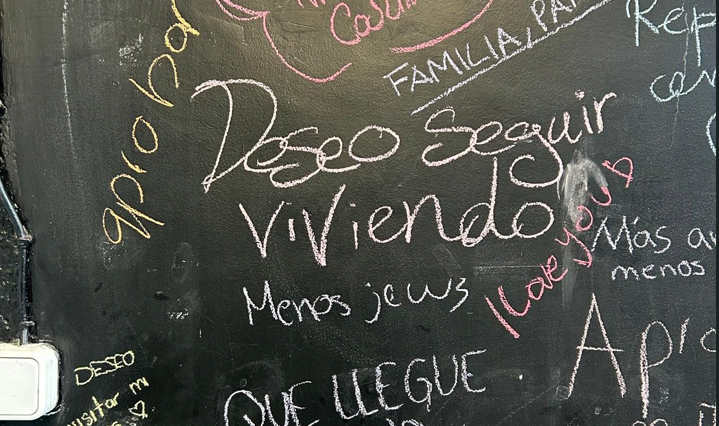 FAMILIA, PA
aprobar
Deseo Seguir
viviendo
I Love you
Más a
menos
Menos jews
Apr
DESEO
visitar mi
QUE LLEGUE